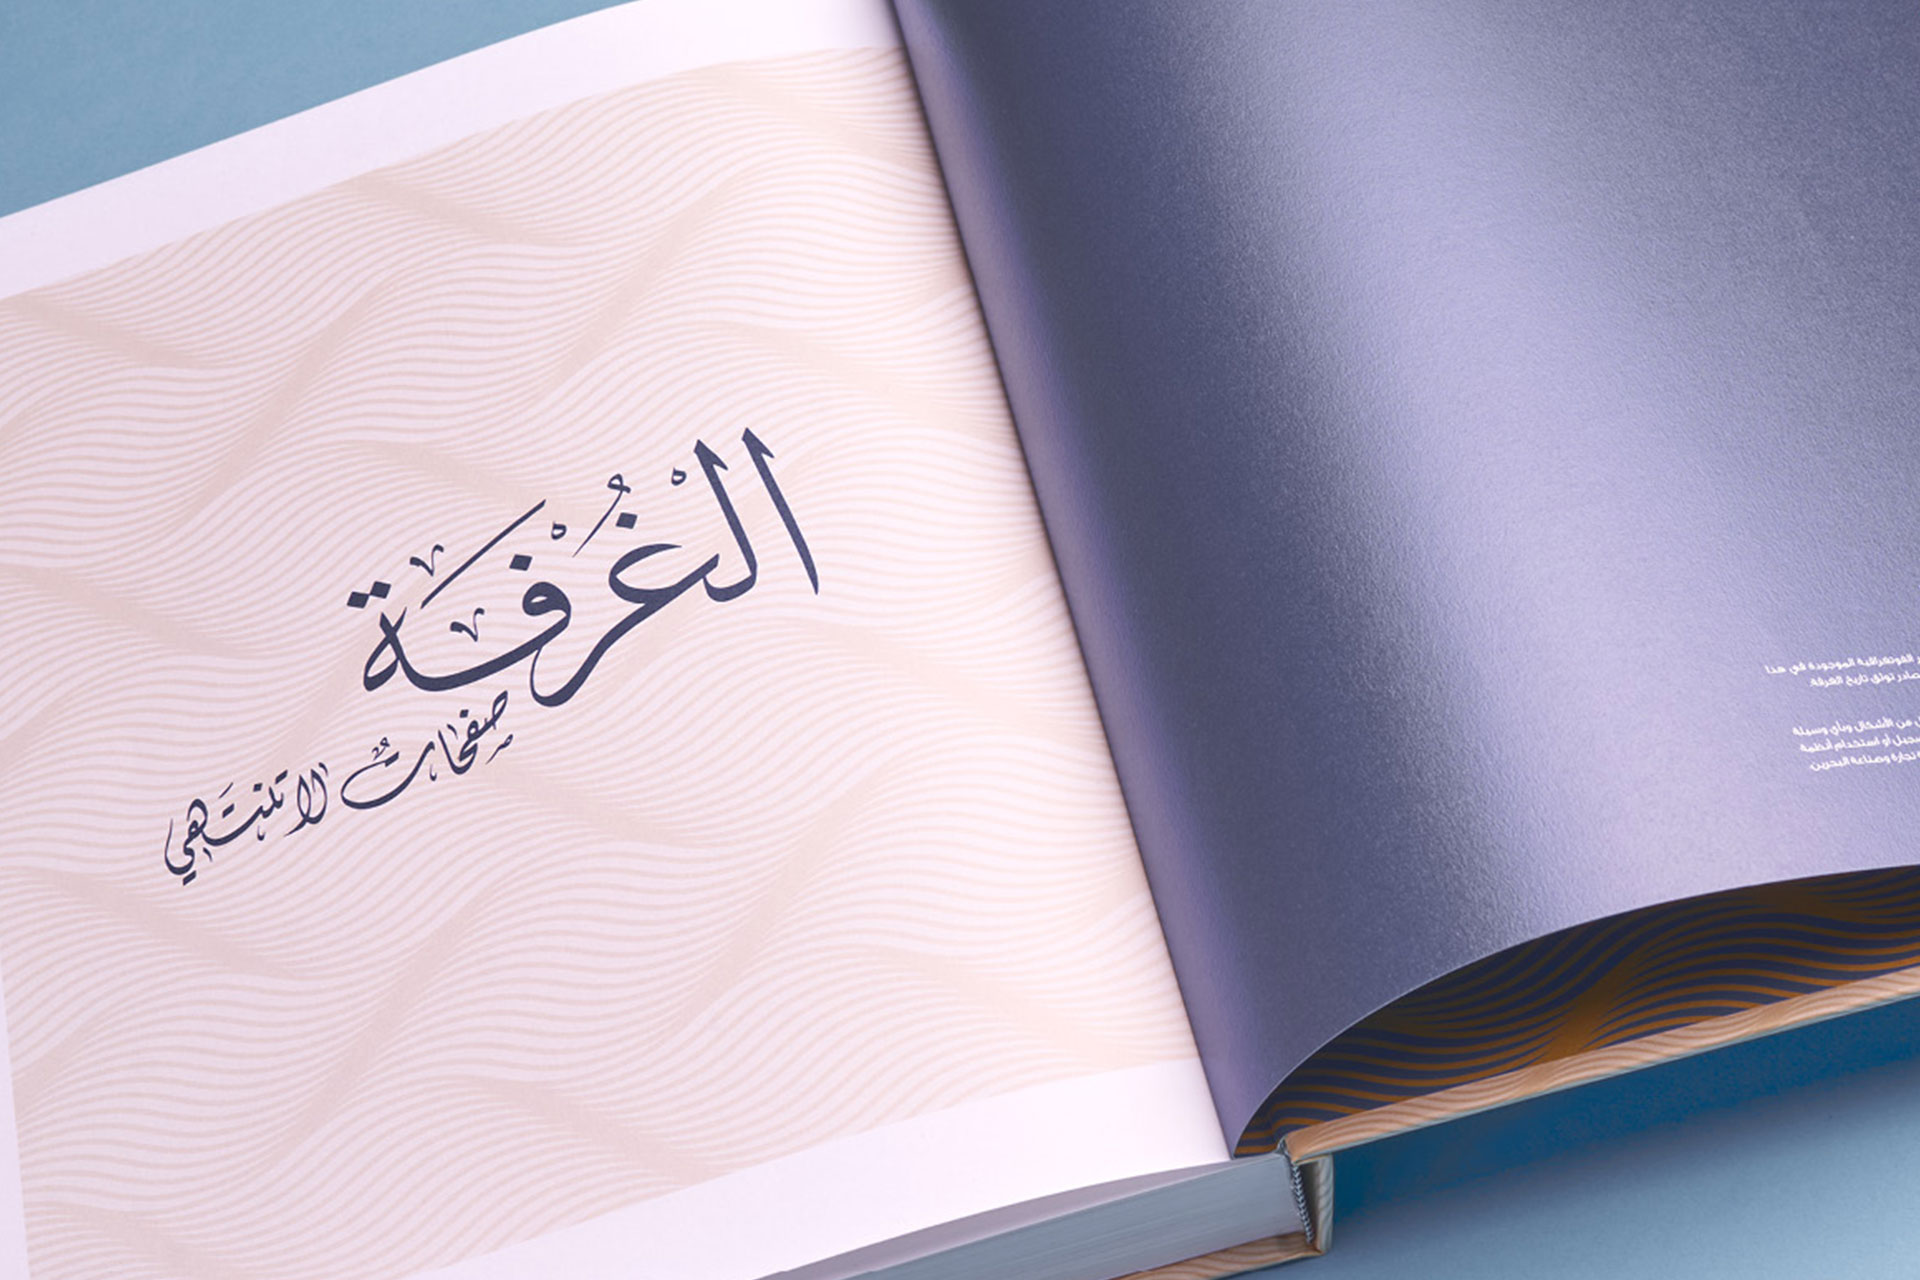 الْغُرْفَة
صفحاتٌ لا تنتَهي
الفوتغرافية الموجودة في هذا
توثق تاريخ الغرفة.
من الأشكال وبأي وسيلة
أو استخدام أنظمة
تجارة وصناعة البحرين.